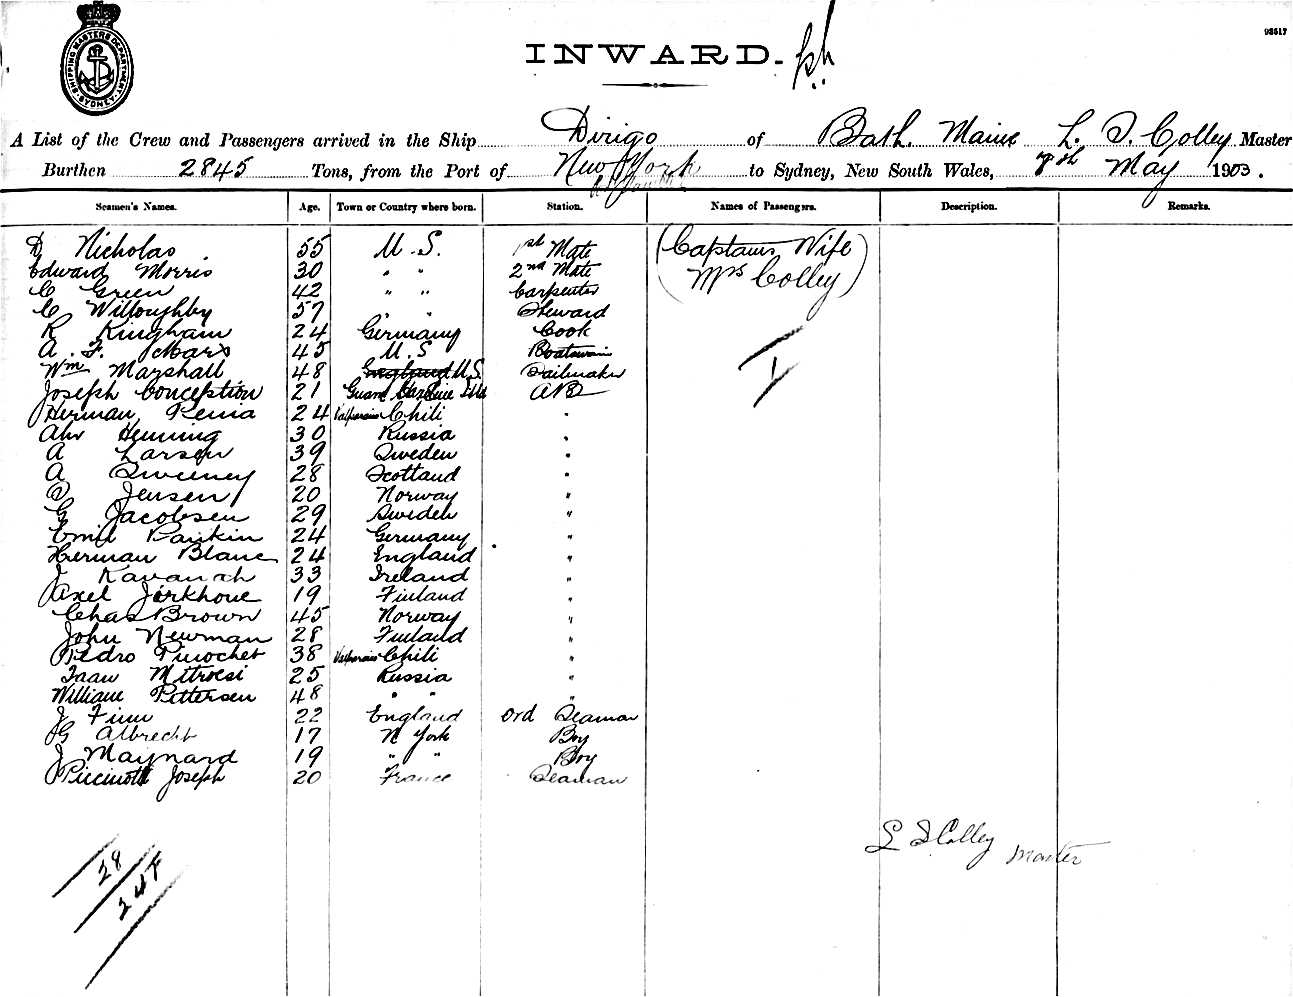 SHIPPING MASTERS DEPARTMENT SYDNEY
98517
INWARD.
A List of the Crew and Passengers arrived in the Ship Dirigo of Bath. Maine L. D. Colley Master
Burthen 2845 Tons, from the Port of New York to Sydney, New South Wales, May 1903.
Seamen's Names. Age. Town or Country where born. Station. Names of Passengers. Description. Remarks.
D Nicholas 55 U.S. 1st Mate (Captains Wife
Edward Morris 30 " " 2nd Mate Mrs Colley)
C Green 42 " " Carpenter
C Willoughby 57 " " Steward
R Kingham 24 Germany Cook
A. F. Marx 45 U.S Boatswain
Wm Marshall 48 England U.S. Sailmaker
Joseph Conception 21 Guam AB
Herman Renia 24 Valparaiso Chili "
Henning 30 Russia "
A Larsen 39 Sweden "
A Sweeney 28 Scotland "
Jensen 20 Norway "
G Jacobsen 29 Sweden "
Emil Pankin 24 Germany "
Herman Blanc 24 England "
J Kavanah 33 Ireland "
Axel Jorkhoue 19 Finland "
Chas Brown 45 Norway "
John Newman 28 Finland "
Pedro Pinochet 38 Valparaiso Chili "
25 Russia "
William Pettersen 48 " " "
J Finn 22 England Ord Seaman
G Albrecht 17 N York Boy
J Maynard 19 " " Boy
Joseph 20 France Seaman
L D Colley Master
28